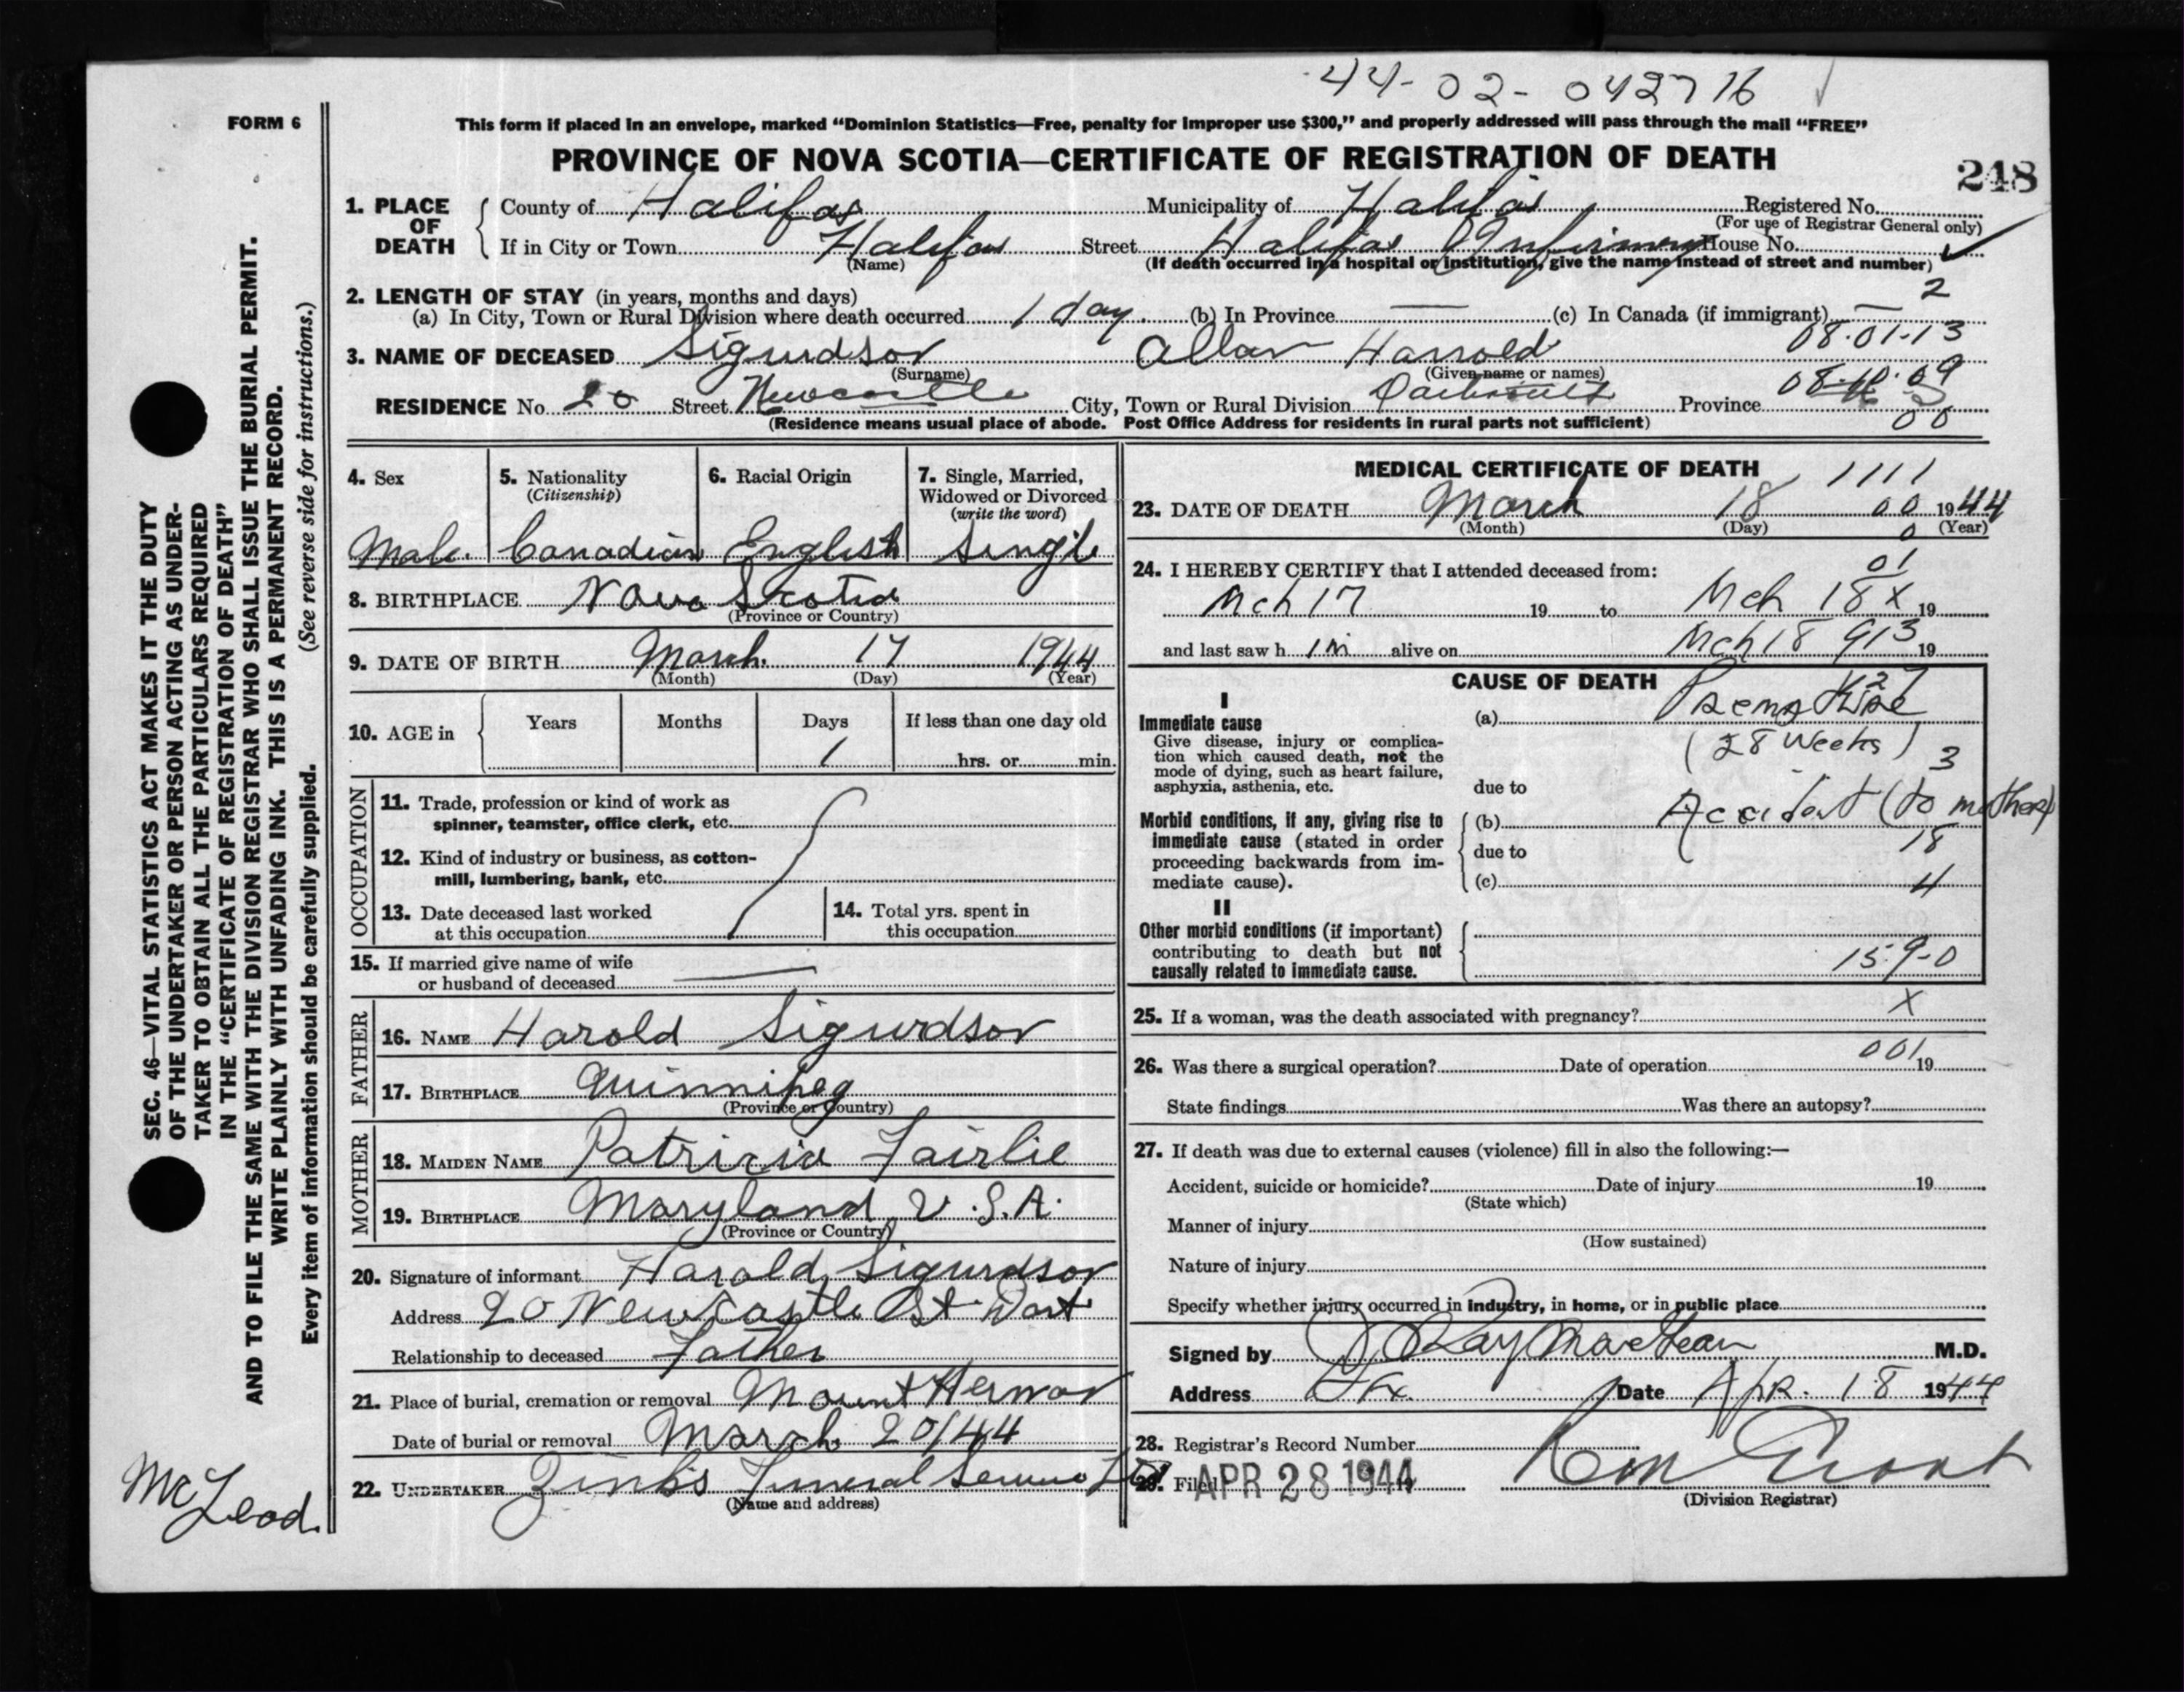 44-02-042716
FORM 6
This form if placed in an envelope, marked "Dominion Statistics—Free, penalty for improper use $300," and properly addressed will pass through the mail "FREE"
PROVINCE OF NOVA SCOTIA—CERTIFICATE OF REGISTRATION OF DEATH
248
1. PLACE OF DEATH County of Halifax Municipality of Halifax Registered No.
(For use of Registrar General only)
If in City or Town Halifax Street Halifax Infirmary House No.
(Name) (If death occurred in a hospital or institution, give the name instead of street and number)
2. LENGTH OF STAY (in years, months and days) 2
(a) In City, Town or Rural Division where death occurred 1 day (b) In Province — (c) In Canada (if immigrant) —
08.01.13
3. NAME OF DECEASED Sigurdson Allan Harrold
(Surname) (Given name or names)
RESIDENCE No. 20 Street Newcastle City, Town or Rural Division Dartmouth Province
(Residence means usual place of abode. Post Office Address for residents in rural parts not sufficient) 00
4. Sex 5. Nationality (Citizenship) 6. Racial Origin 7. Single, Married, Widowed or Divorced (write the word)
Male Canadian English Single
8. BIRTHPLACE Nova Scotia
(Province or Country)
9. DATE OF BIRTH March 17 1944
(Month) (Day) (Year)
10. AGE in Years Months Days If less than one day old
1 hrs. or min.
OCCUPATION
11. Trade, profession or kind of work as
spinner, teamster, office clerk, etc.
12. Kind of industry or business, as cotton-
mill, lumbering, bank, etc.
13. Date deceased last worked
at this occupation
14. Total yrs. spent in
this occupation
15. If married give name of wife
or husband of deceased
FATHER
16. NAME Harold Sigurdson
17. BIRTHPLACE Quinnipeg
(Province or Country)
MOTHER
18. MAIDEN NAME Patricia Fairlie
19. BIRTHPLACE Maryland U.S.A.
(Province or Country)
20. Signature of informant Harold Sigurdson
Address 20 Newcastle St Dart
Relationship to deceased Father
21. Place of burial, cremation or removal Mount Hermon
Date of burial or removal March 20/44
22. UNDERTAKER Zink's Funeral Service Ltd
(Name and address)
MEDICAL CERTIFICATE OF DEATH 1111
23. DATE OF DEATH March 18 00 1944
(Month) (Day) 0 (Year)
01
24. I HEREBY CERTIFY that I attended deceased from:
Mch 17 19 to Mch 18 X 19
and last saw h im alive on Mch 18 913 19
CAUSE OF DEATH
I
Immediate cause
Give disease, injury or complica-
tion which caused death, not the
mode of dying, such as heart failure,
asphyxia, asthenia, etc.
(a) Premature
(28 Weeks) 3
due to
Morbid conditions, if any, giving rise to
immediate cause (stated in order
proceeding backwards from im-
mediate cause).
(b) Accident (to mother)
due to 18
(c) 4
II
Other morbid conditions (if important)
contributing to death but not
causally related to immediate cause.
159-0
25. If a woman, was the death associated with pregnancy? X
26. Was there a surgical operation? Date of operation 001 19
State findings Was there an autopsy?
27. If death was due to external causes (violence) fill in also the following:—
Accident, suicide or homicide? Date of injury 19
(State which)
Manner of injury
(How sustained)
Nature of injury
Specify whether injury occurred in industry, in home, or in public place
Signed by J Ray MacLean M.D.
Address Hfx. Date Apr. 18 1944
28. Registrar's Record Number
29. Filed APR 28 1944
(Division Registrar)
SEC. 46—VITAL STATISTICS ACT MAKES IT THE DUTY
OF THE UNDERTAKER OR PERSON ACTING AS UNDER-
TAKER TO OBTAIN ALL THE PARTICULARS REQUIRED
IN THE "CERTIFICATE OF REGISTRATION OF DEATH"
AND TO FILE THE SAME WITH THE DIVISION REGISTRAR WHO SHALL ISSUE THE BURIAL PERMIT.
WRITE PLAINLY WITH UNFADING INK. THIS IS A PERMANENT RECORD.
Every item of information should be carefully supplied. (See reverse side for instructions.)
McLeod.